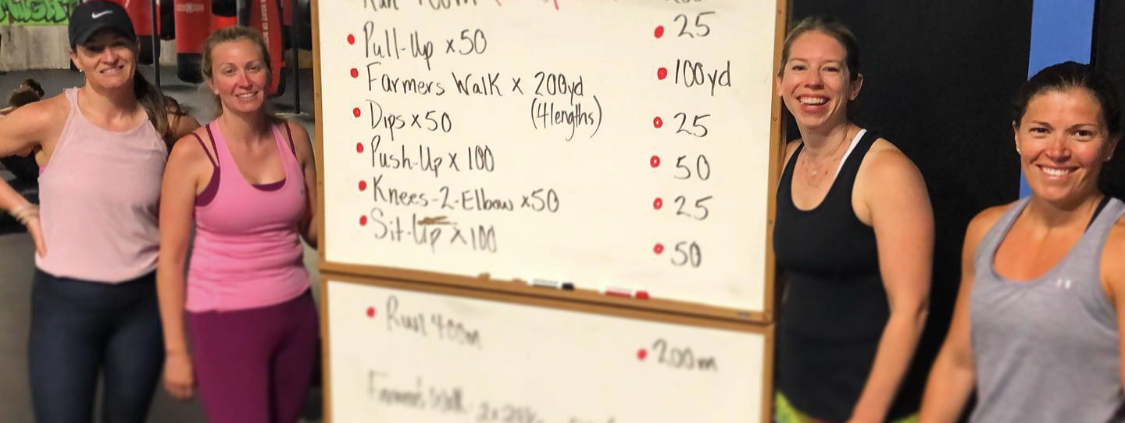 Run 400m
Pull-Up x50 25
Farmers Walk x 200yd 100yd
(4 lengths)
Dips x50 25
Push-Up x 100 50
Knees-2-Elbow x50 25
Sit-Up x100 50
Run 400m 200m
Farmer's Walk